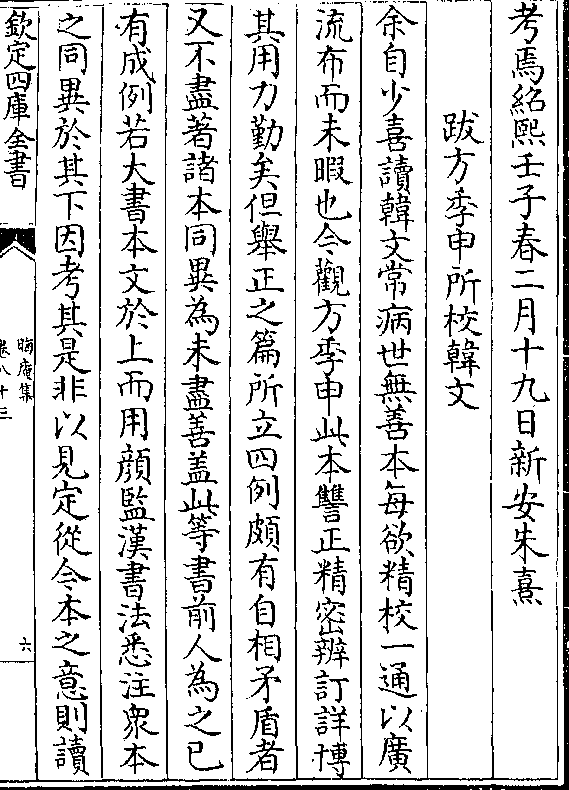 考焉紹熙壬子春二月十九日新安朱熹
跋方季申所校韓文
余自少喜讀韓文常病世無善本每欲精校一通以廣
流布而未暇也今觀方季申此本讐正精密辨訂詳博
其用力勤矣但舉正之篇所立四例頗有自相矛盾者
又不盡著諸本同異為未盡善盖此等書前人為之已
有成例若大書本文於上而用顔監漢書法悉注衆本
之同異於其下因考其是非以見定從今本之意則讀
欽定四庫全書
晦庵集
卷八十三
六